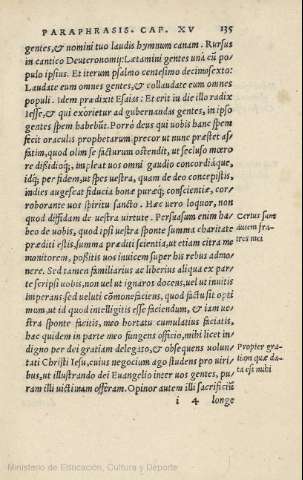 PARAPHRASIS. CAP. XV 135
gentes, & nomini tuo laudis hymnum canam. Rursus
in cantico Deuteronomij: Lætamini gentes unà cū po/
pulo ipsius. Et iterum psalmo centesimo decimosexto:
Laudate eum omnes gentes, & collaudate eum omnes
populi. Idem prædixit Esaias: Et erit in die illo radix
Iesse, & qui exorietur ad gubernandas gentes, in ipso
gentes spem habebūt. Porrò deus qui uobis hanc spem
fecit oraculis prophetarum. precor ut nunc præstet af/
fatim, quod olim se facturum ostendit, ut secluso mœro
re diffidíq;, impleat uos omni gaudio concordiáque,
idq; per fidem, ut spes uestra, quam de deo concepistis,
indies augescat fiducia bonæ puræq; conscientiæ, cor/
roborante uos spiritu sancto. Hæc uero loquor, non
quod diffidam de uestra uirtute. Persuasum enim ha/
beo de uobis, quod ipsi uestra sponte summa charitate
præditi estis, summa præditi scientia, ut etiam citra me
monitorem, possitis uos inuicem super his rebus admo/
nere. Sed tamen familiarius ac liberius aliqua ex par/
te scripsi uobis, non uel ut ignaros docens, uel ut inuitis
imperans sed ueluti cōmonefaciens, quod factu sit opti
mum, ut id quod intelligitis esse faciendum, & iam ue/
stra sponte facitis, meo hortatu cumulatius faciatis,
hac quidem in parte meo fungens officio, mihi licet in/
digno per dei gratiam delegato, & obsequens uolun/
tati Christi Iesu, cuius negocium ago studens pro uiri/
bus, ut illustrando dei Euangelio inter uos gentes, pu/
ram illi uictimam offeram. Opinor autem illi sacrificiū
i 4 longe
Certus sum
autem fra/
tres mei
Propter gra/
tiam quæ da/
ta est mihi
Ministerio de Educación, Cultura y Deporte